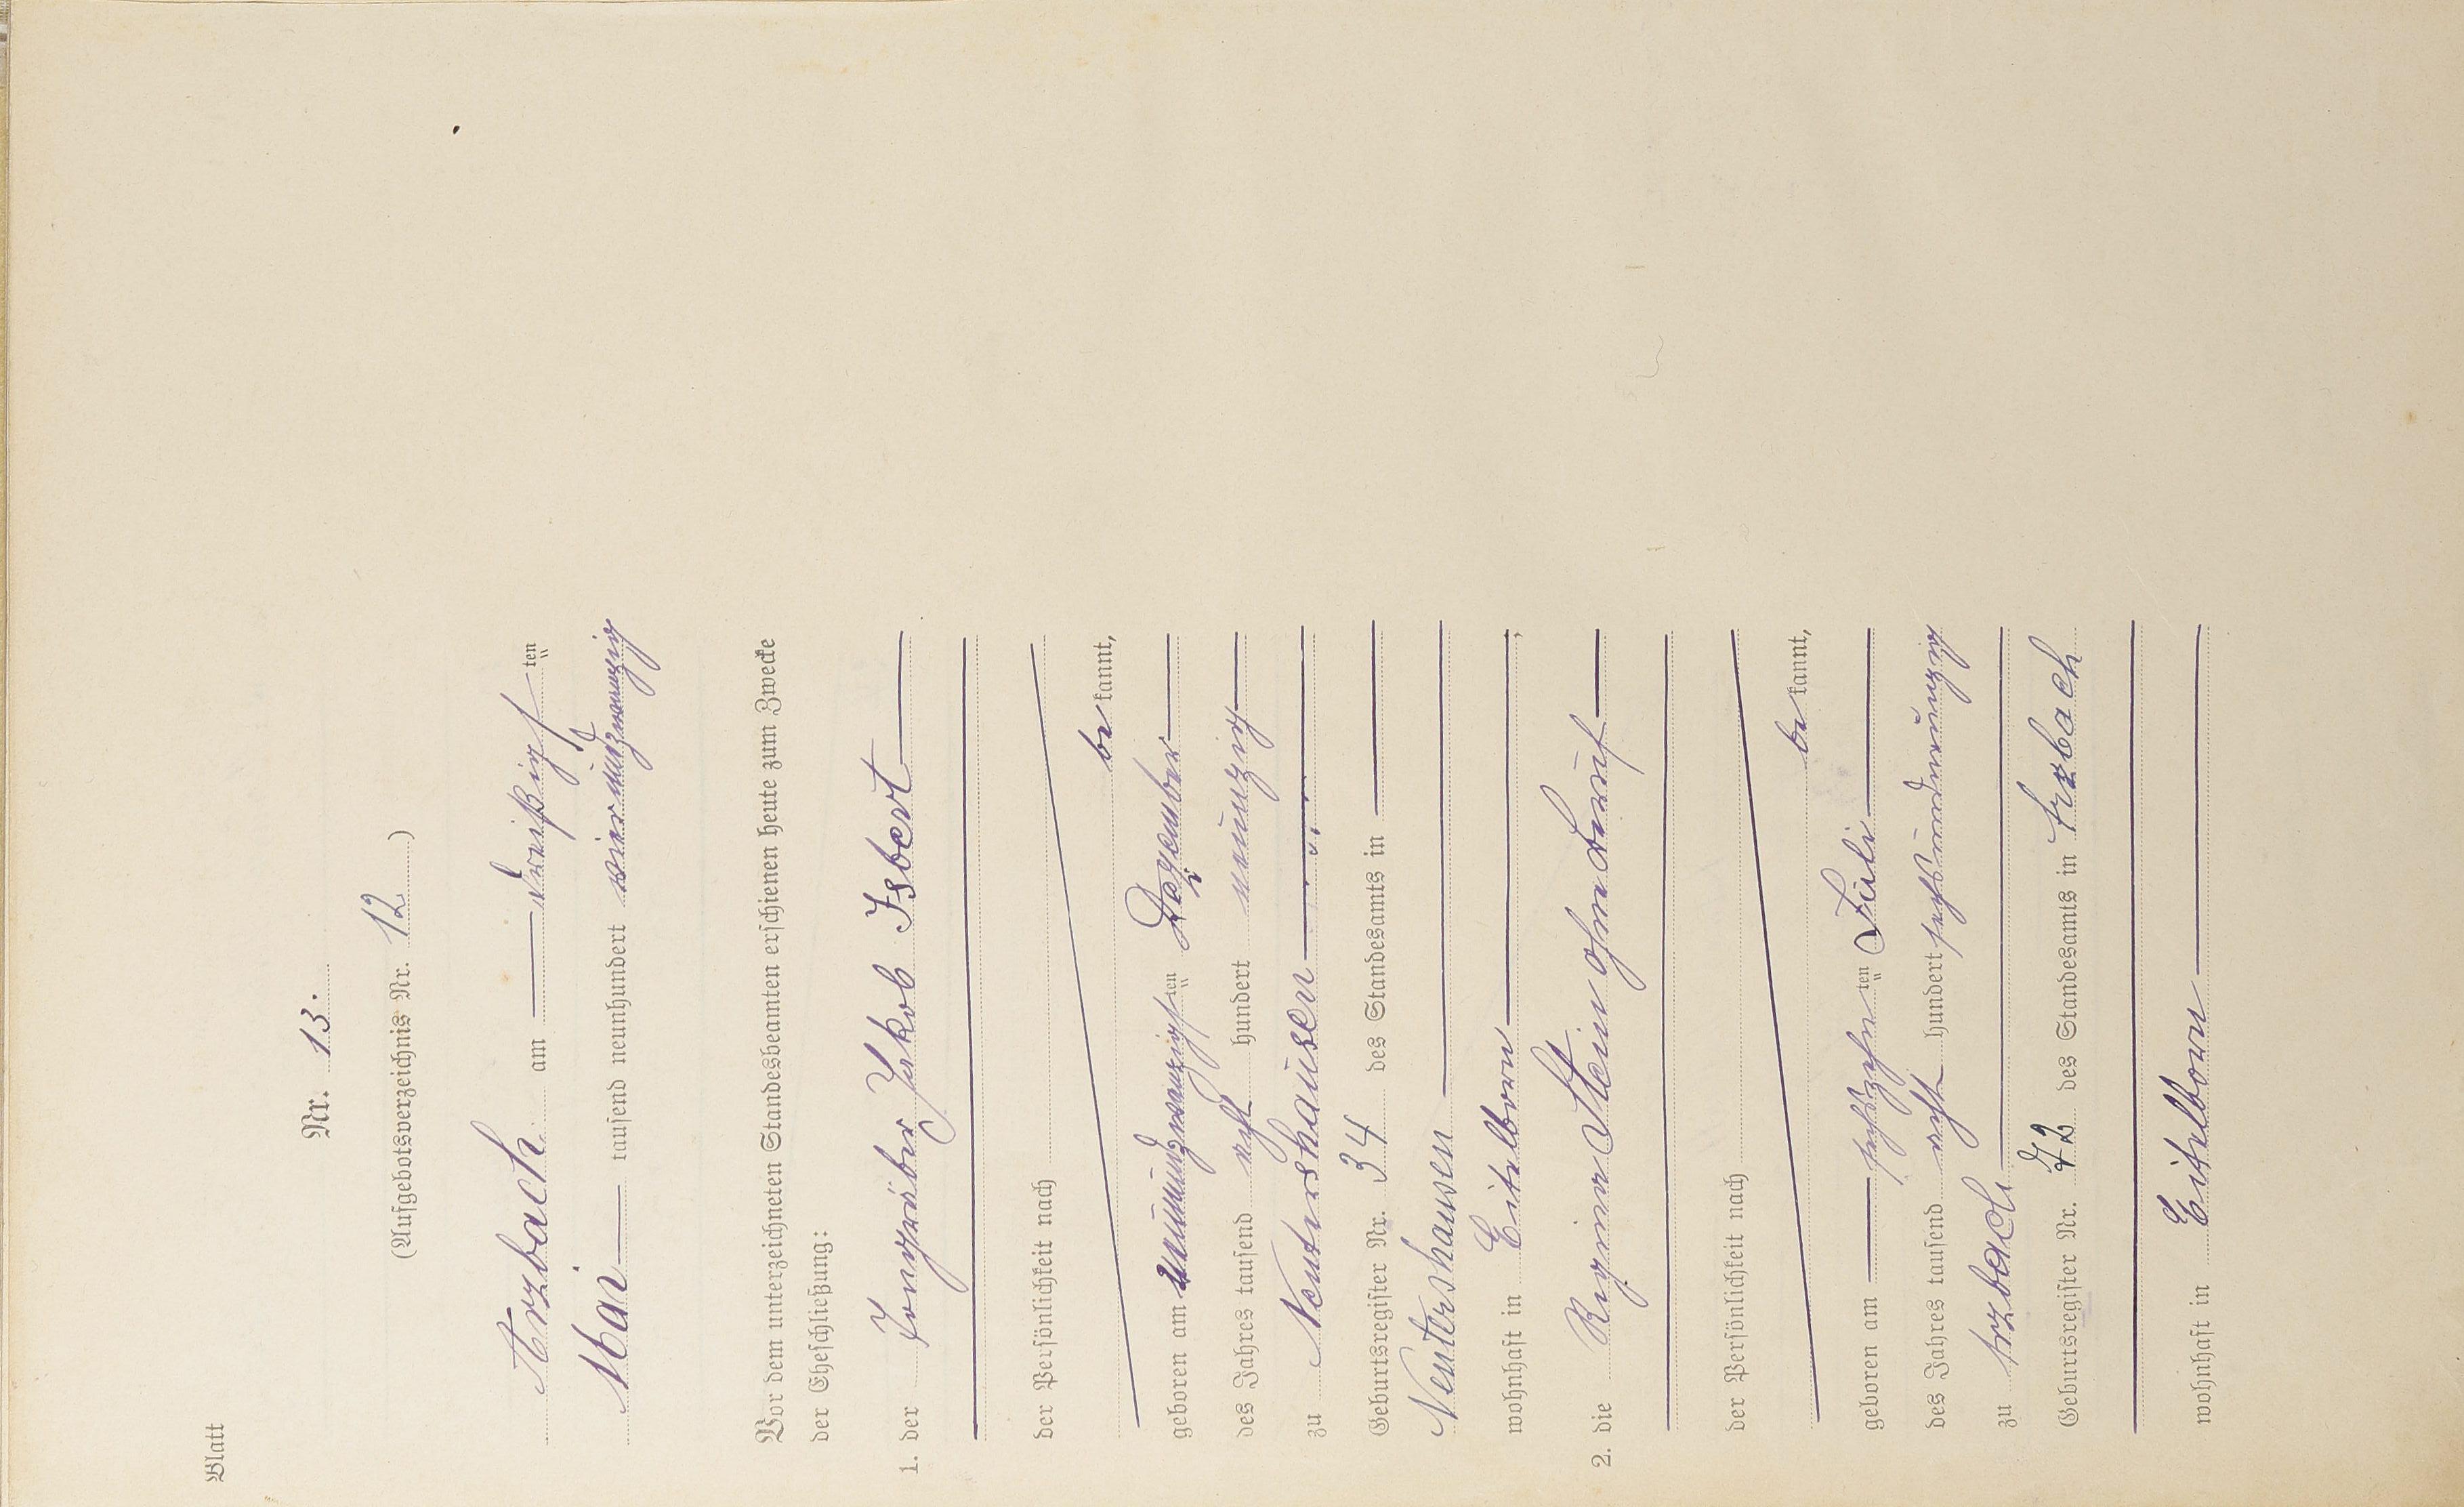 Blatt
Nr. 13.
(Aufgebotsverzeichnis Nr. 12)
Arzbach am dreißigsten
Mai tausend neunhundert vierundzwanzig
Vor dem unterzeichneten Standesbeamten erschienen heute zum Zwecke
der Eheschließung:
1. der Tongräber Jakob Isbert
der Persönlichkeit nach
be kannt,
geboren am neunundzwanzigsten Dezember
des Jahres tausend acht hundert neunzig
zu Nentershausen
Geburtsregister Nr. 34 des Standesamts in
Nentershausen
wohnhaft in Eitelborn,
2. die Regina Stein ohne Beruf
der Persönlichkeit nach
be kannt,
geboren am sechszehnten Juli
des Jahres tausend acht hundert sechsundneunzig
zu Arzbach
Geburtsregister Nr. 42 des Standesamts in Arzbach
wohnhaft in Eitelborn